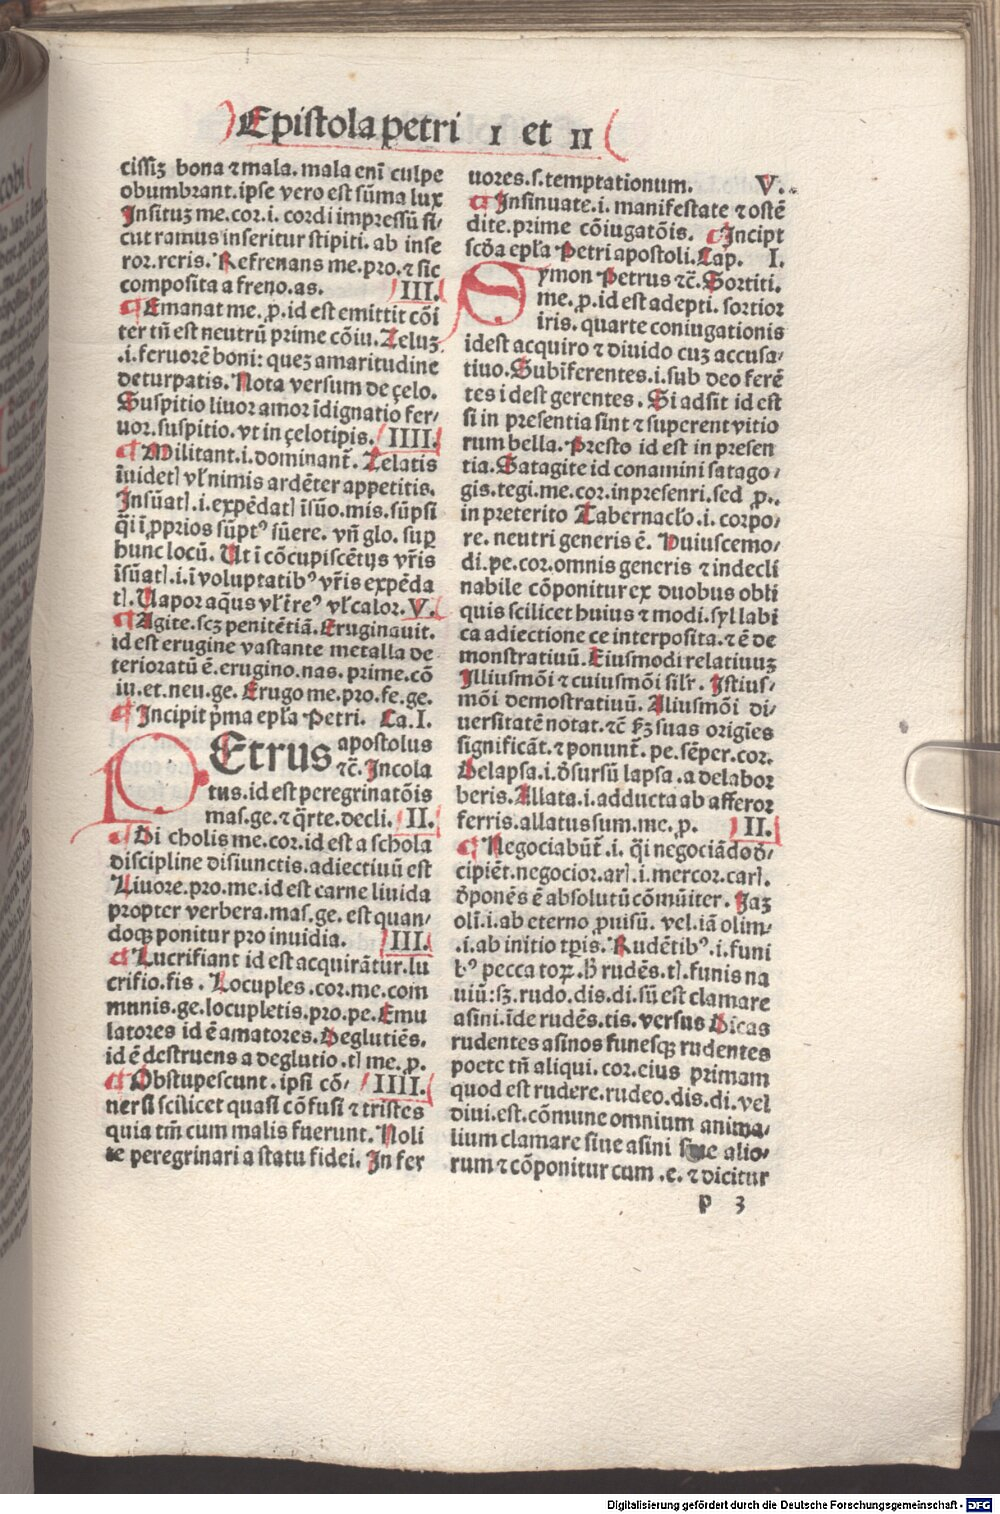 Epistola petri I et II
cissiꝫ bona ⁊ mala. mala eni̅ culpe
obumbrant. ipse vero est su̅ma lux
Insituꝫ me.cor.i. cordi impressu̅ si/
cut ramus inseritur stipiti. ab inse
ror.reris. Refrenans me.pro.⁊ sic
composita a freno.as. III.
Emanat me.ꝓ.id est emittit co̅i
ter tn̅ est neutru̅ prime co̅iu. Zeluꝫ
.i. feruore̅ boni: queꝫ amaritudine
deturpatis. Nota versum de çelo.
Suspitio liuor amor i̅dignatio fer/
uor.suspitio. vt in çelotipis. IIII.
Militant.i.dominant̅. Zelatis
i̅uidetꝭ vl̕ nimis arde̅ter appetitis.
Insu̅atꝭ.i.expe̅datꝭ i̅su̅o.mis.su̅psi
q̅i i̅ ꝓprios su̅ptꝰ su̅ere. vn̅ glo. suꝑ
hunc locu̅. Ut i̅ co̅cupisce̅tijs vr̅is
i̅su̅atꝭ.i.i̅ voluptatibꝰ vr̅is expe̅da
tꝭ. Uapor aq̅us vl̕ i̅reꝰ vl̕ calor. V.
Agite.scꝫ penite̅tia̅. Eruginauit.
id est erugine vastante metalla de
terioratu̅ e̅. erugino.nas.prime.co̅
iu.et.neu.ge. Erugo me.pro.fe.ge.
Incipit p̅ma epl̕a Petri. Ca. I.
PEtrus apostolus
⁊c̅. Incola
tus.id est peregrinato̅is
mas.ge.⁊ q̅rte.decli. II.
Di cholis me.cor.id est a schola
discipline disiunctis.adiectiuu̅ est
Liuore.pro.me.id est carne liuida
propter verbera.mas.ge. est quan/
doqꝫ ponitur pro inuidia. III.
Lucrifiant id est acquira̅tur.lu
crifio.fis. Locuples.cor.me.com
munis.ge.locupletis.pro.pe. Emu
latores id e̅ amatores. Deglutie̅s.
id e̅ destruens a deglutio.tꝭ me.ꝓ.
Obstupescunt. ipsi co̅/ IIII.
nersi scilicet quasi co̅fusi ⁊ tristes
quia tm̅ cum malis fuerunt. Noli
te peregrinari a statu fidei. In fer
uores.s.temptationum. V.
Insinuate.i. manifestate ⁊ oste̅
dite.prime co̅iugato̅is. Incipt
sco̅a epl̕a Petri apostoli. Cap. I.
Symon Petrus ⁊c̅. Sortiti.
me.ꝓ.id est adepti. sortior
iris. quarte coniugationis
idest acquiro ⁊ diuido cuꝫ accusa/
tiuo. Subi̅ferentes.i.sub deo fere̅
tes i dest gerentes. Si adsit id est
si in presentia sint ⁊ superent vitio
rum bella. Presto id est in presen
tia. Satagite id conamini satago/
gis.tegi.me.cor.inpresenri.sed ꝓ..
in preterito Tabernacl̕o.i. corpo/
re. neutri generis e̅. Huiuscemo/
di.pe.cor.omnis generis ⁊ indecli
nabile co̅ponitur ex duobus obli
quis scilicet huius ⁊ modi.syl labi
ca adiectione ce interposita.⁊ e̅ de
monstratiuu̅. Eiusmodi relatiuuꝫ
Illiusmo̅i ⁊ cuiusmo̅i silr̅. Istius/
mo̅i demostratiuu̅. Aliusmo̅i di/
uersitate̅ notat.⁊c̅ pꝫ suas origi̅es
significa̅t.⁊ ponunt̅. pe.se̅per.cor.
Delapsa.i.d̅sursu̅ lapsa.a delabor
beris. Allata.i.adducta ab afferor
ferris.allatus sum.me.ꝓ. II.
Negociabu̅t̅.i. q̅i negocia̅do d̅/
cipie̅t.negocior.arꝭ.i.mercor.carꝭ.
d̅pone̅s e̅ absolutu̅ co̅mu̅iter. Jaꝫ
oli̅.i.ab eterno ꝓuisu̅. vel.ia̅ olim/
.i.ab initio tꝑis. Rude̅tibꝰ.i.funi
bꝰ pecca toꝝ.h̅ rude̅s.tꝭ.funis na
uiu̅:sꝫ.rudo.dis.di.su̅ est clamare
asini.i̅de rude̅s.tis.versus Dicas
rudentes asinos funesqꝫ rudentes
poete tn̅ aliqui.cor.eius primam
quod est rudere.rudeo.dis.di.vel
diui.est.co̅mune omnium anima/
lium clamare siue asini siue alio/
rum ⁊ co̅ponitur cum.e. ⁊ dicitur
p 3
Digitalisierung gefördert durch die Deutsche Forschungsgemeinschaft - DFG